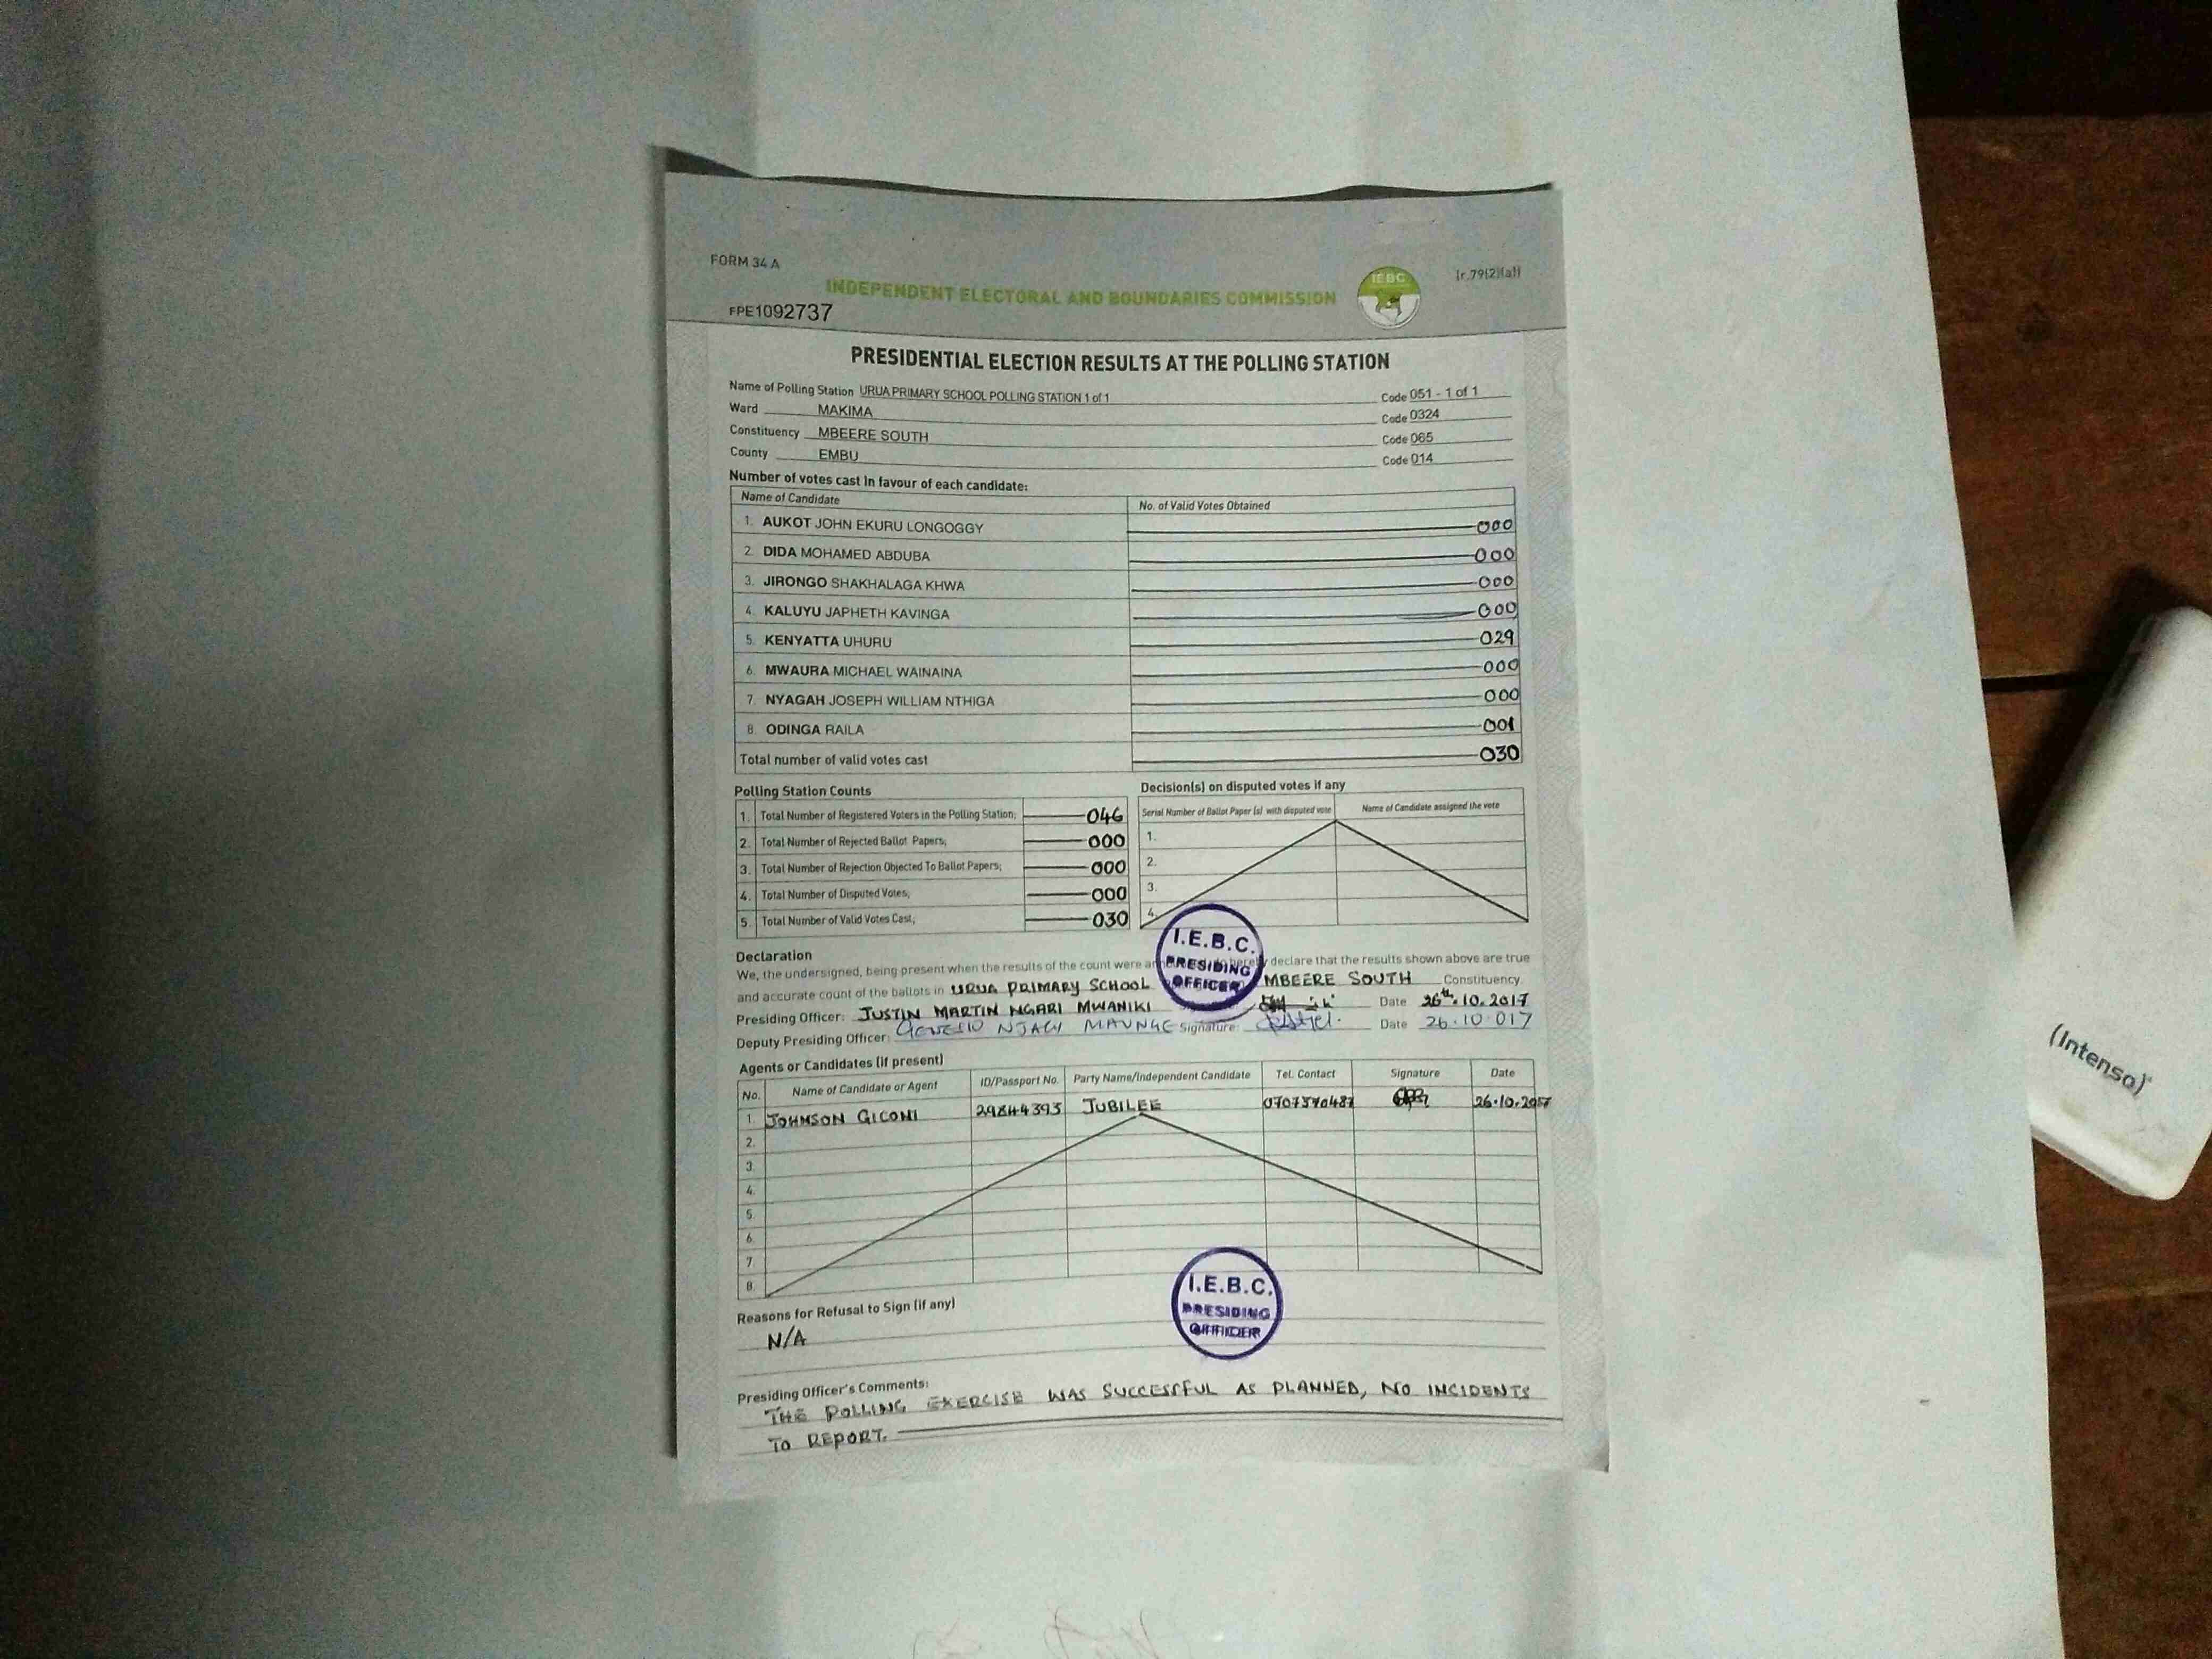 FORM 34 A
[r.79(2)(a)]
INDEPENDENT ELECTORAL AND BOUNDARIES COMMISSION
IEBC
FPE1092737
PRESIDENTIAL ELECTION RESULTS AT THE POLLING STATION
Name of Polling Station URUA PRIMARY SCHOOL POLLING STATION 1 of 1 Code 051 - 1 of 1
Ward MAKIMA Code 0324
Constituency MBEERE SOUTH Code 065
County EMBU Code 014
Number of votes cast in favour of each candidate:
Name of Candidate No. of Valid Votes Obtained
1. AUKOT JOHN EKURU LONGOGGY 000
2. DIDA MOHAMED ABDUBA 000
3. JIRONGO SHAKHALAGA KHWA 000
4. KALUYU JAPHETH KAVINGA 000
5. KENYATTA UHURU 029
6. MWAURA MICHAEL WAINAINA 000
7. NYAGAH JOSEPH WILLIAM NTHIGA 000
8. ODINGA RAILA 001
Total number of valid votes cast 030
Polling Station Counts
1. Total Number of Registered Voters in the Polling Station; 046
2. Total Number of Rejected Ballot Papers; 000
3. Total Number of Rejection Objected To Ballot Papers; 000
4. Total Number of Disputed Votes; 000
5. Total Number of Valid Votes Cast; 030
Decision(s) on disputed votes if any
Serial Number of Ballot Paper (s) with disputed vote Name of Candidate assigned the vote
1.
2.
3.
4.
I.E.B.C.
PRESIDING
OFFICER
Declaration
We, the undersigned, being present when the results of the count were declare that the results shown above are true
and accurate count of the ballots in URUA PRIMARY SCHOOL MBEERE SOUTH Constituency.
Presiding Officer: JUSTIN MARTIN NGARI MWANIKI Date 26th.10.2017
Deputy Presiding Officer: NJAGI Signature: Date 26.10.017
Agents or Candidates (if present)
No. Name of Candidate or Agent ID/Passport No. Party Name/Independent Candidate Tel. Contact Signature Date
1. JOHNSON GICONI 29844393 JUBILEE 26.10.2017
2.
3.
4.
5.
6.
7.
8.
I.E.B.C.
PRESIDING
OFFICER
Reasons for Refusal to Sign (if any)
N/A
Presiding Officer's Comments:
THE POLLING EXERCISE WAS SUCCESSFUL AS PLANNED, NO INCIDENTS
TO REPORT.
(Intenso)